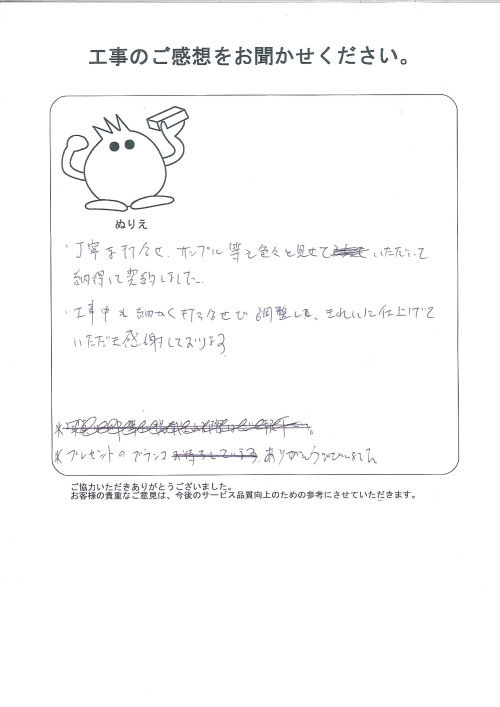 工事のご感想をお聞かせください。
ぬりえ
・丁寧な打合せ、サンプル等を色々と見せて いただいて
納得して契約しました。
・工事中も細かく打合せや調整しを、きれいに仕上げて
いただき感謝しております
※
※プレゼントのブランコ お待ちしています ありがとうございました
ご協力いただきありがとうございました。
お客様の貴重なご意見は、今後のサービス品質向上のための参考にさせていただきます。